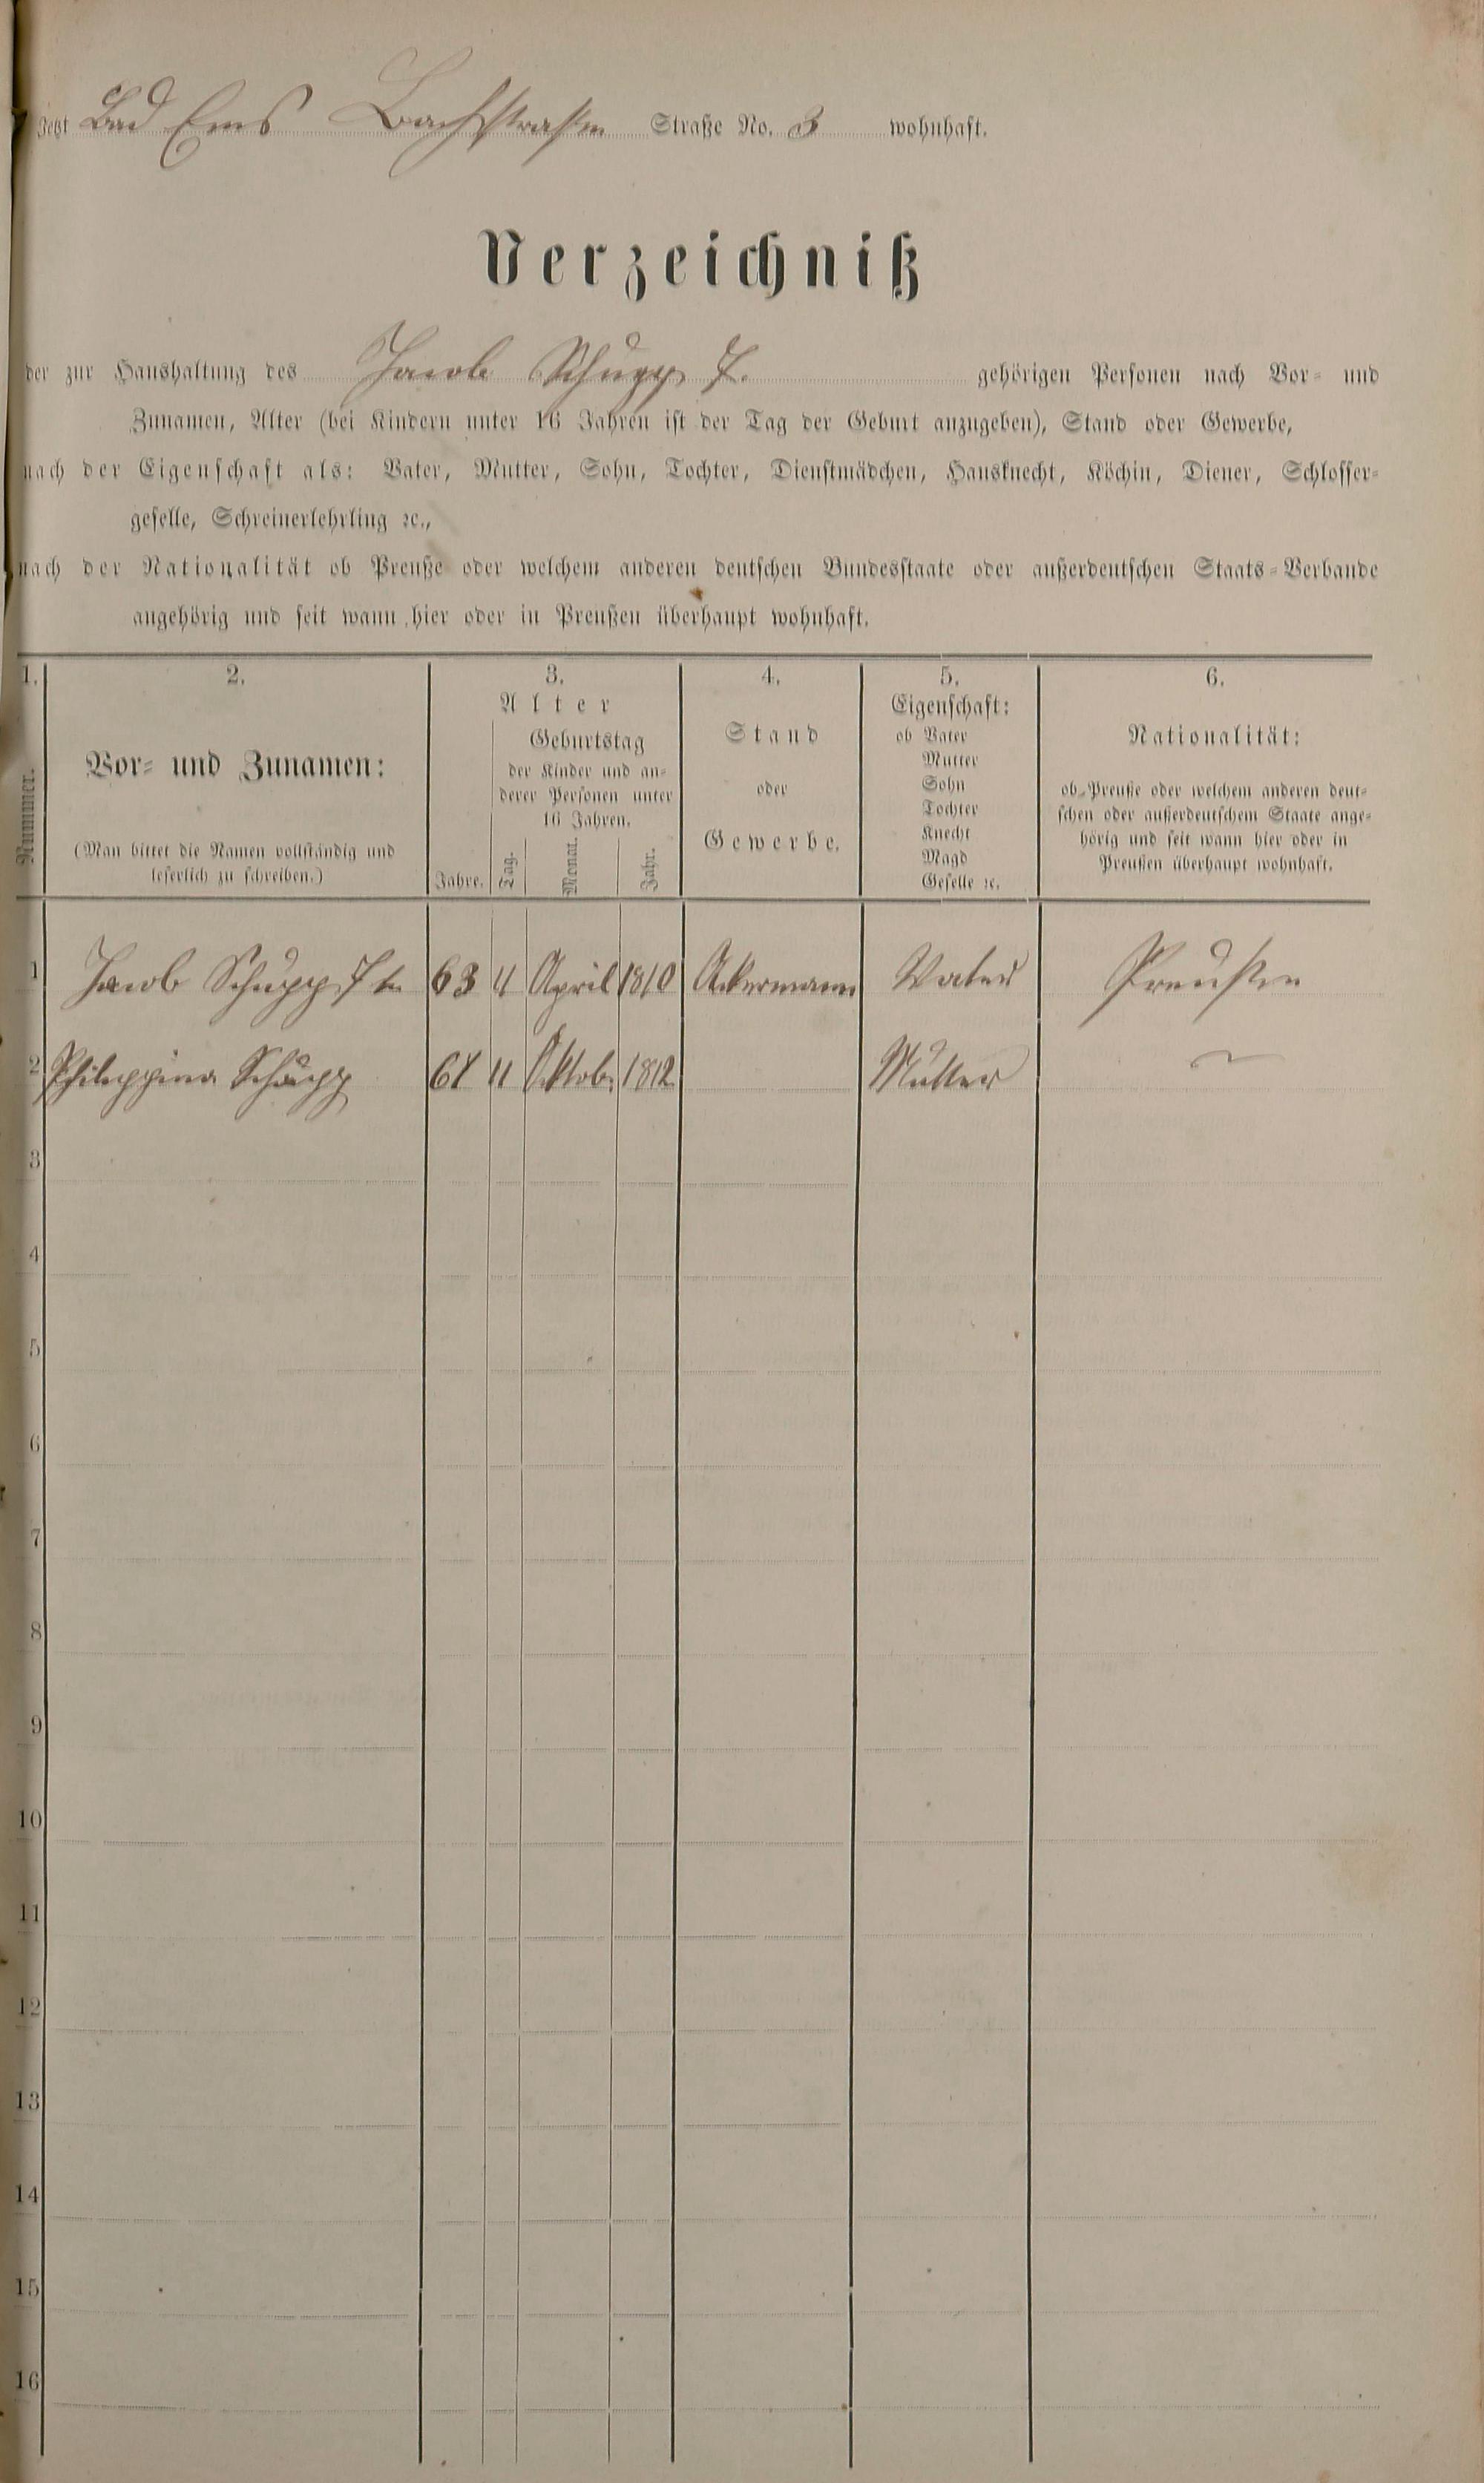 Jetzt Bad Ems Bachstraße Straße No. 3 wohnhaft.
Verzeichniß
der zur Haushaltung des Jacob Schupp 7. gehörigen Personen nach Vor- und
Zunamen, Alter (bei Kindern unter 16 Jahren ist der Tag der Geburt anzugeben), Stand oder Gewerbe,
nach der Eigenschaft als: Vater, Mutter, Sohn, Tochter, Dienstmädchen, Hausknecht, Köchin, Diener, Schlosser-
geselle, Schreinerlehrling ꝛc.,
nach der Nationalität ob Preuße oder welchem anderen deutschen Bundesstaate oder außerdeutschen Staats-Verbande
angehörig und seit wann hier oder in Preußen überhaupt wohnhaft.
1. 2. 3. 4. 5. 6.
Nummer.
Vor- und Zunamen:
(Man bittet die Namen vollständig und
leserlich zu schreiben.)
Alter
Jahre.
Geburtstag
der Kinder und an-
derer Personen unter
16 Jahren.
Tag. Monat. Jahr.
Stand
oder
Gewerbe.
Eigenschaft:
ob Vater
Mutter
Sohn
Tochter
Knecht
Magd
Geselle ꝛc.
Nationalität:
ob Preuße oder welchem anderen deut-
schen oder außerdeutschem Staate ange-
hörig und seit wann hier oder in
Preußen überhaupt wohnhaft.
1 Jacob Schupp 7te 63 11 April 1810 Ackermann Vater Preußen
2 Philippina Schupp 61 11 Oktob. 1812 Mutter ~
3
4
5
6
7
8
9
10
11
12
13
14
15
16